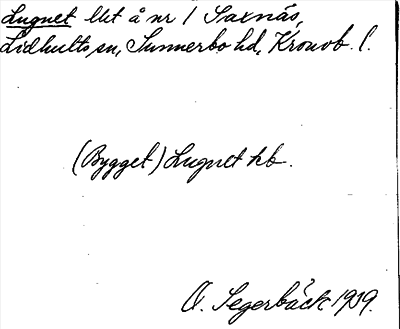 Lugnet lht å nr 1 Saxnäs,
Lidhults sn, Sunnerbo hd, Kronob. l.
(Bygget) Lugnet hb.
O. Segerbäck 1939.